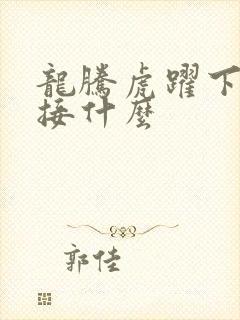 龍騰虎躍下
接什麼
郭佳